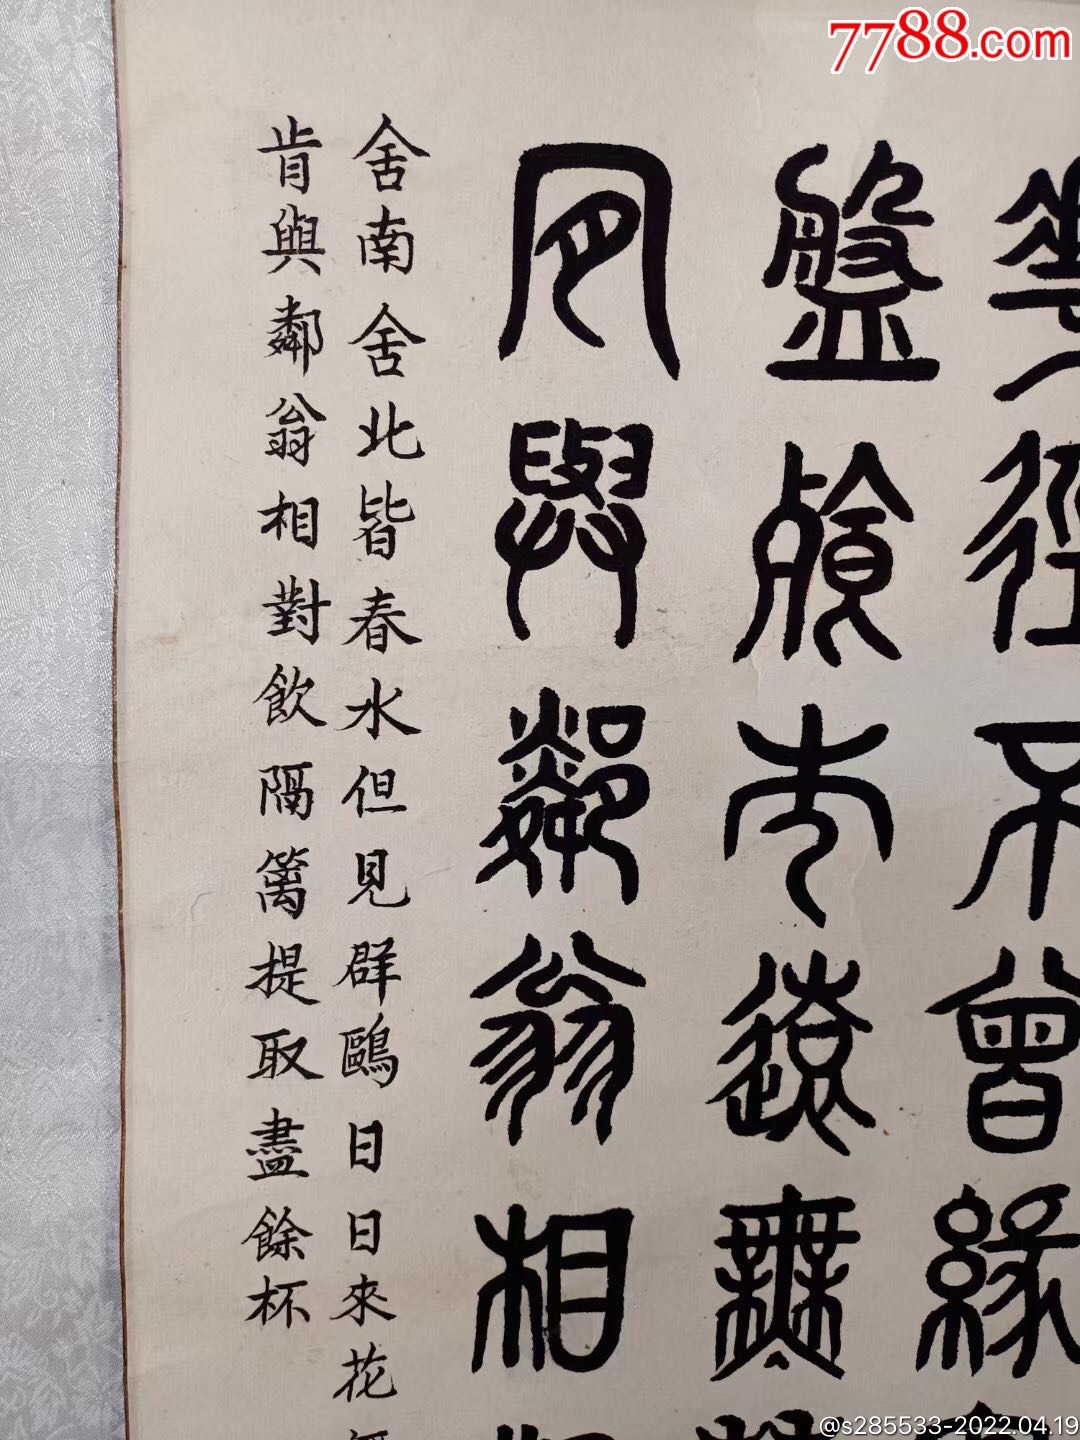 7788.com
花徑不曾緣
盤飧市遠無
肯與鄰翁相
舍南舍北皆春水但見群鷗日日來花
肯與鄰翁相對飲隔籬提取盡餘杯
@s285533-2022.04.19